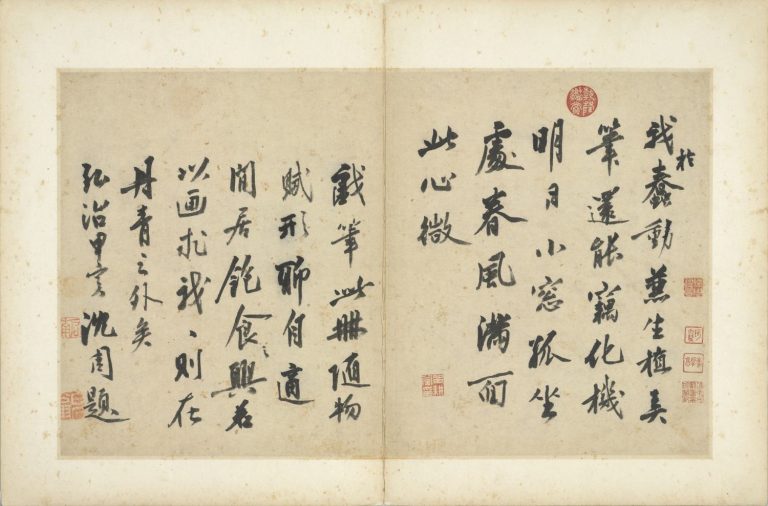 乾隆鑑賞
我於蠢動兼生植弄
筆還能竊化機
明日小窓孤坐
處春風滿面
此心微
戲筆此冊隨物
賦形聊自適
閒居飽食之興若
以画求我〻則在
丹青之外矣
弘治甲寅沈周題